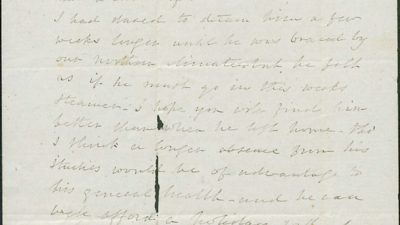 I had dared to detain him a few
weeks longer until he was braced by
our northern climate but he felt
as if he must go in this weeks
Steamer. I hope you will find him
better than when he left home. Tho'
I think a longer absence from his
Studies would be of advantage to
his general health - and he can
afford a holiday